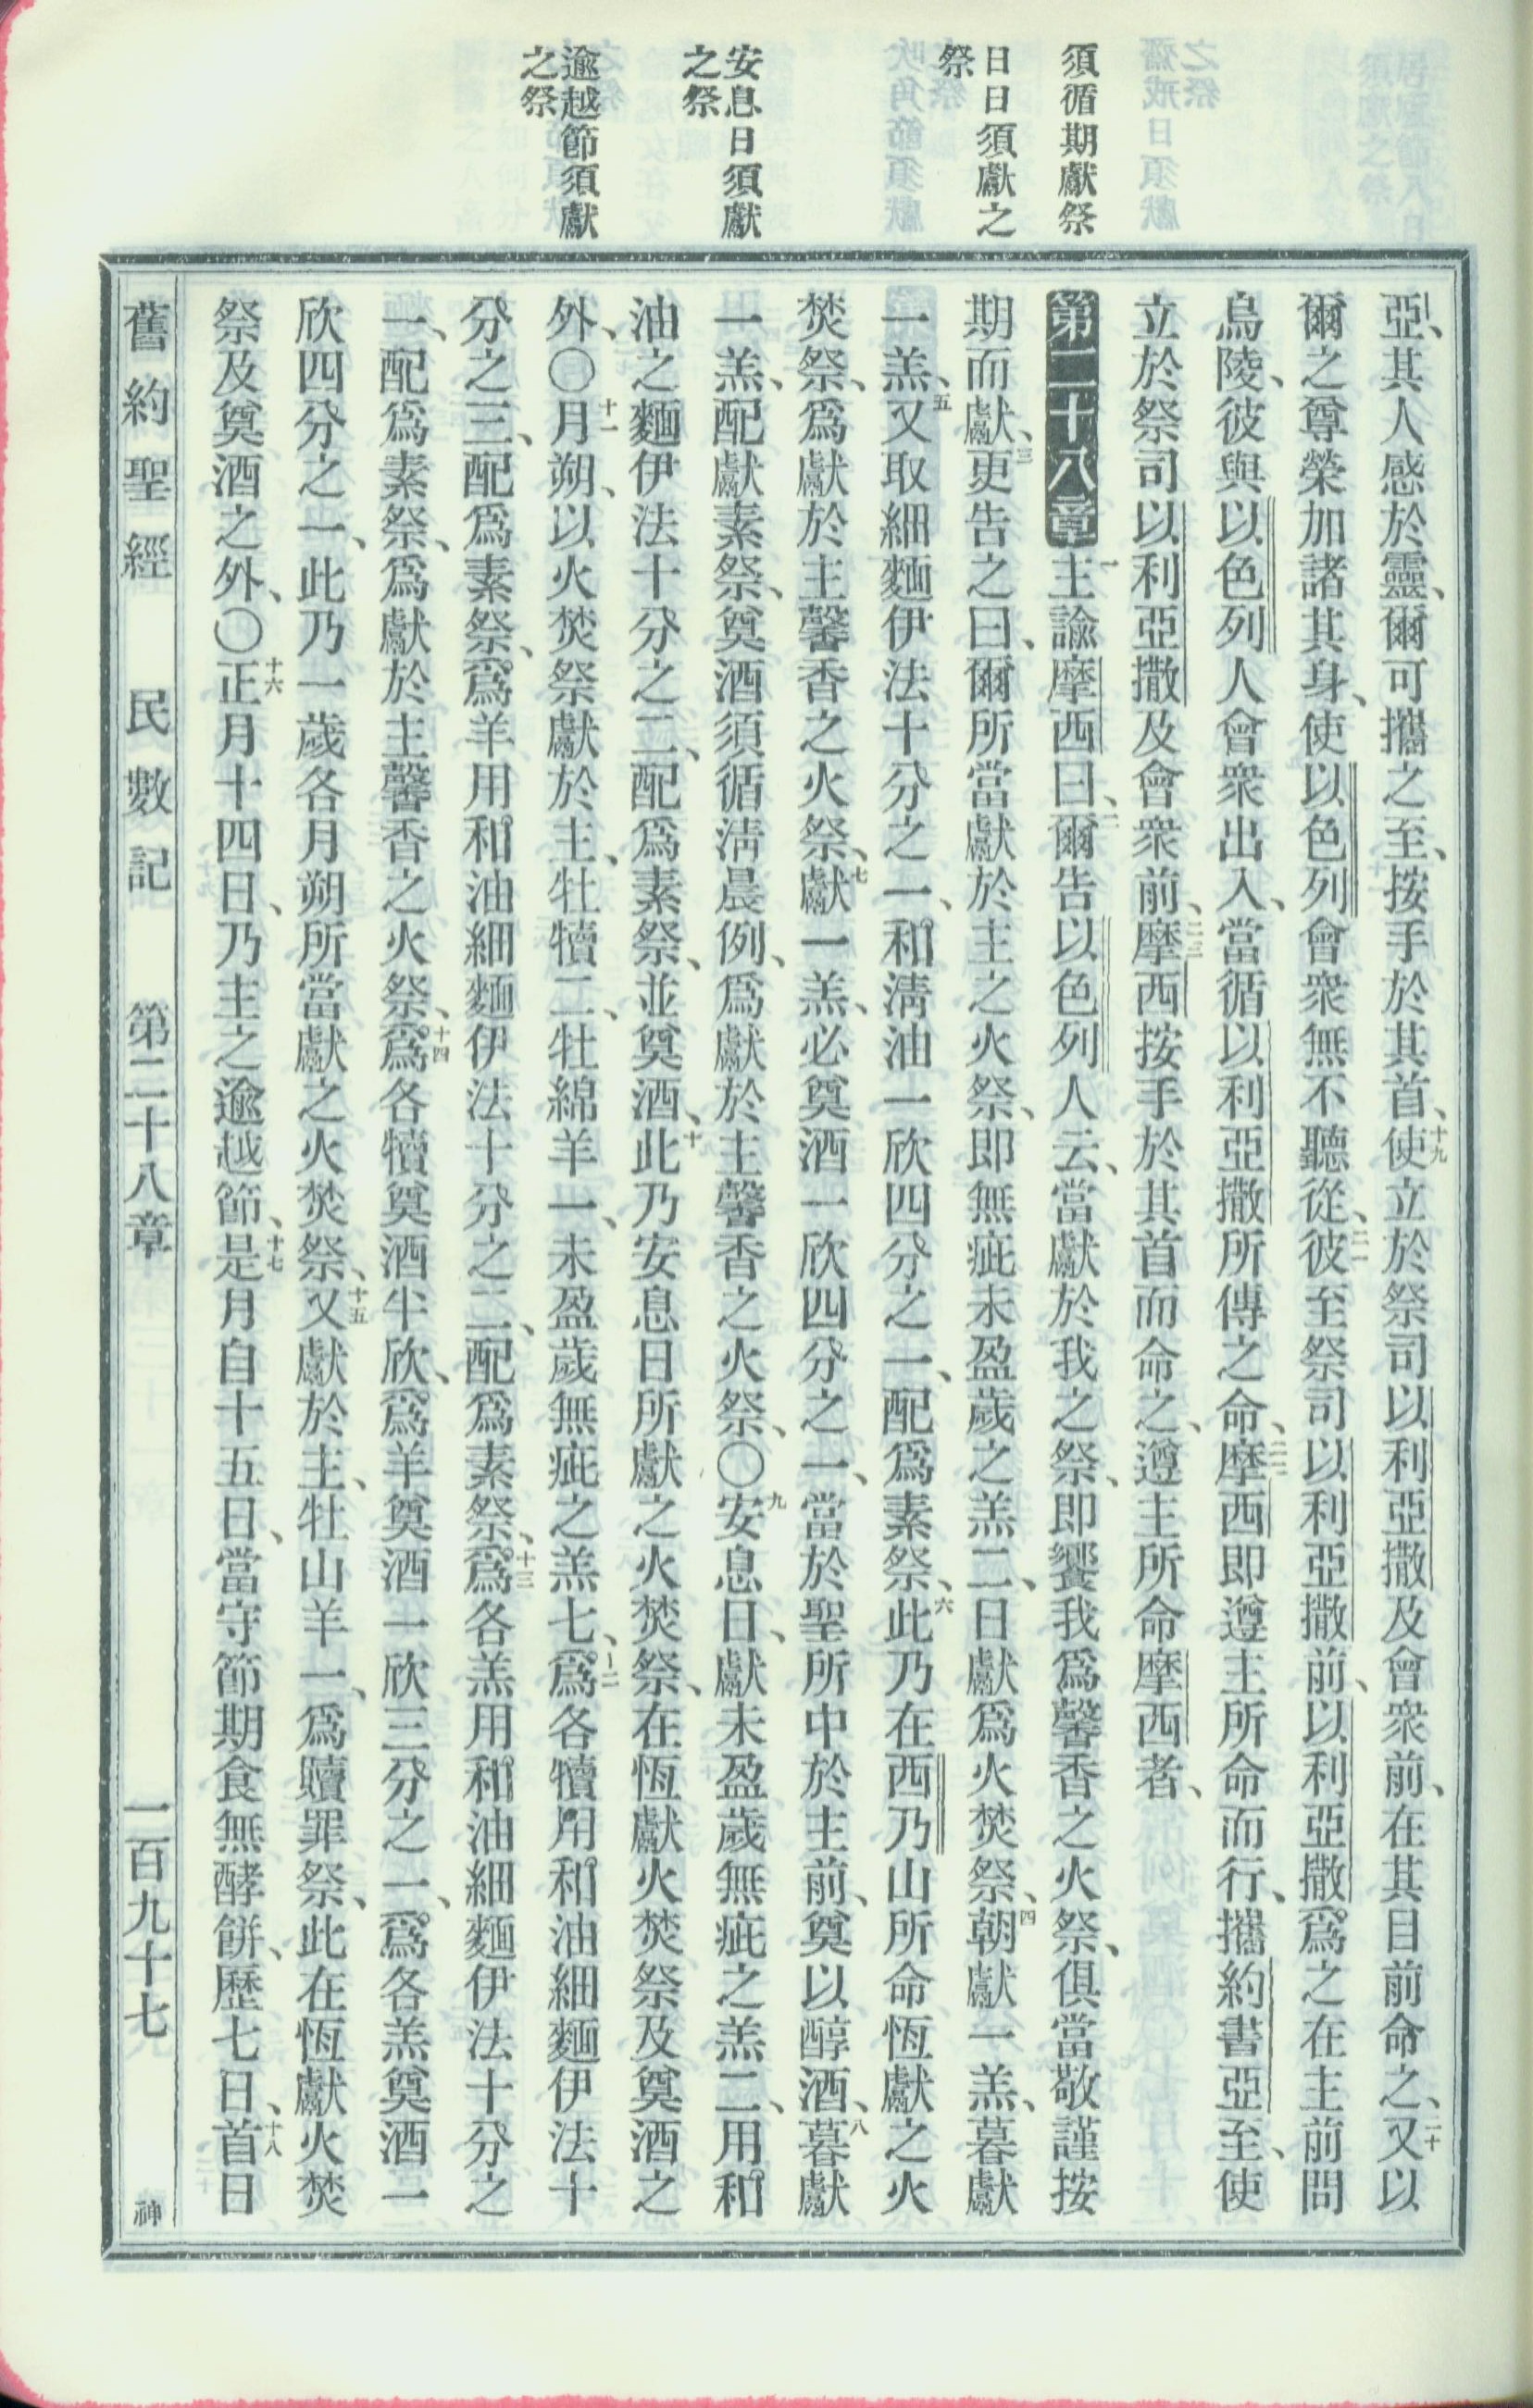 須循期獻祭
日日須獻之
祭
安息日須獻
之祭
逾越節須獻
之祭
亞、其人感於靈、爾可攜之至、按手於其首、十九使立於祭司以利亞撒及會衆前、在其目前命之、二十又以
爾之尊榮加諸其身、使以色列會衆無不聽從、二一彼至祭司以利亞撒前、以利亞撒爲之在主前問
烏陵、彼與以色列人會衆出入、當循以利亞撒所傳之命、二二摩西即遵主所命而行、攜約書亞至、使
立於祭司以利亞撒及會衆前、二三摩西按手於其首而命之、遵主所命摩西者、
第二十八章 一主諭摩西曰、二爾告以色列人云、當獻於我之祭、即饗我爲馨香之火祭、俱當敬謹按
期而獻、三更告之曰、爾所當獻於主之火祭、即無疵未盈歲之羔二、日獻爲火焚祭、四朝獻一羔、暮獻
一羔、五又取細麵伊法十分之一、和淸油一欣四分之一、配爲素祭、六此乃在西乃山所命恆獻之火
焚祭、爲獻於主馨香之火祭、七獻一羔、必奠酒一欣四分之一、當於聖所中於主前、奠以醇酒、八暮獻
一羔、配獻素祭、奠酒須循淸晨例、爲獻於主馨香之火祭、〇九安息日、獻未盈歲無疵之羔二、用和
油之麵伊法十分之二、配爲素祭、並奠酒、十此乃安息日所獻之火焚祭、在恆獻火焚祭及奠酒之
外、〇十一月朔、以火焚祭獻於主、牡犢二、牡綿羊一、未盈歲無疵之羔七、十二爲各犢用和油細麵伊法十
分之三、配爲素祭、爲羊用和油細麵伊法十分之二、配爲素祭、十三爲各羔用和油細麵伊法十分之
一、配爲素祭、爲獻於主馨香之火祭、十四爲各犢奠酒半欣、爲羊奠酒一欣三分之一、爲各羔奠酒一
欣四分之一、此乃一歲各月朔所當獻之火焚祭、十五又獻於主、牡山羊一、爲贖罪祭、此在恆獻火焚
祭及奠酒之外、〇十六正月十四日、乃主之逾越節、十七是月自十五日、當守節期食無酵餅、歷七日、十八首日
舊約聖經 民數記 第二十八章 一百九十七 神